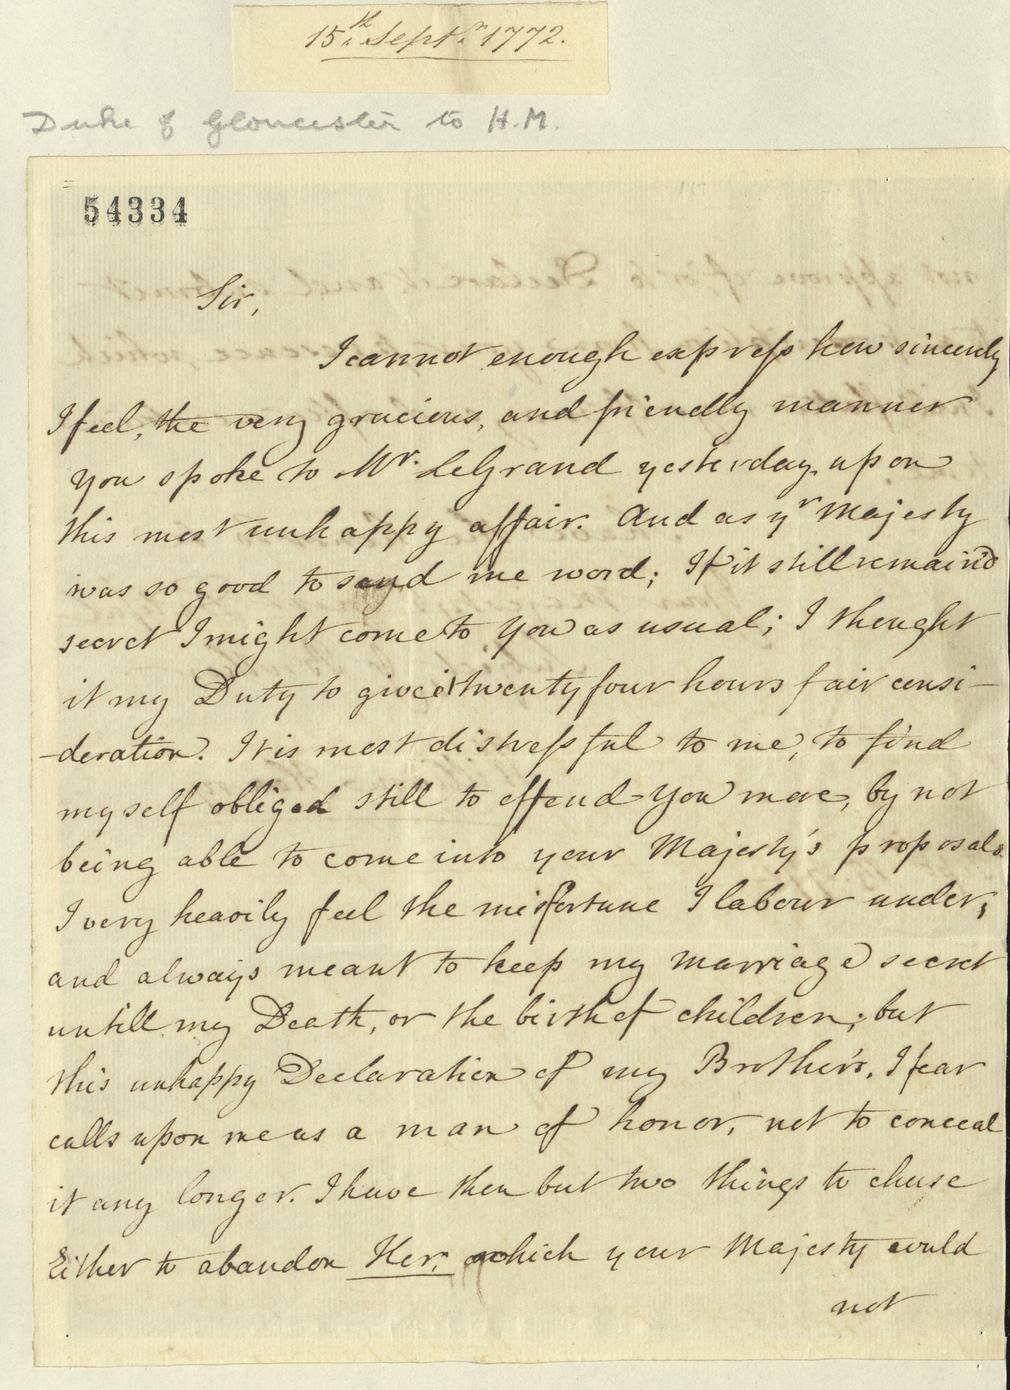 15th Septr. 1772.
Duke of Gloucester to H.M.
54334
Sir,
I cannot enough express how sincerely
I feel, the very gracious, and friendly manner
you spoke to Mr. LeGrand yesterday, upon
this most unhappy affair. And as yr Majesty
was so good to send me word; If it still remain'd
secret I might come to You as usual; I thought
it my Duty to give it twenty four hours fair consi-
-deration. It is most distressful to me, to find
myself obliged still to offend You more, by not
being able to come into your Majesty's proposals.
I very heavily feel the misfortune I labour under;
and always meant to keep my marriage secret
untill my Death, or the birth of children; but
this unhappy Declaration of my Brother's, I fear
calls upon me as a man of honor, not to conceal
it any longer. I have then but two things to chuse
Either to abandon Her; which your Majesty could
not